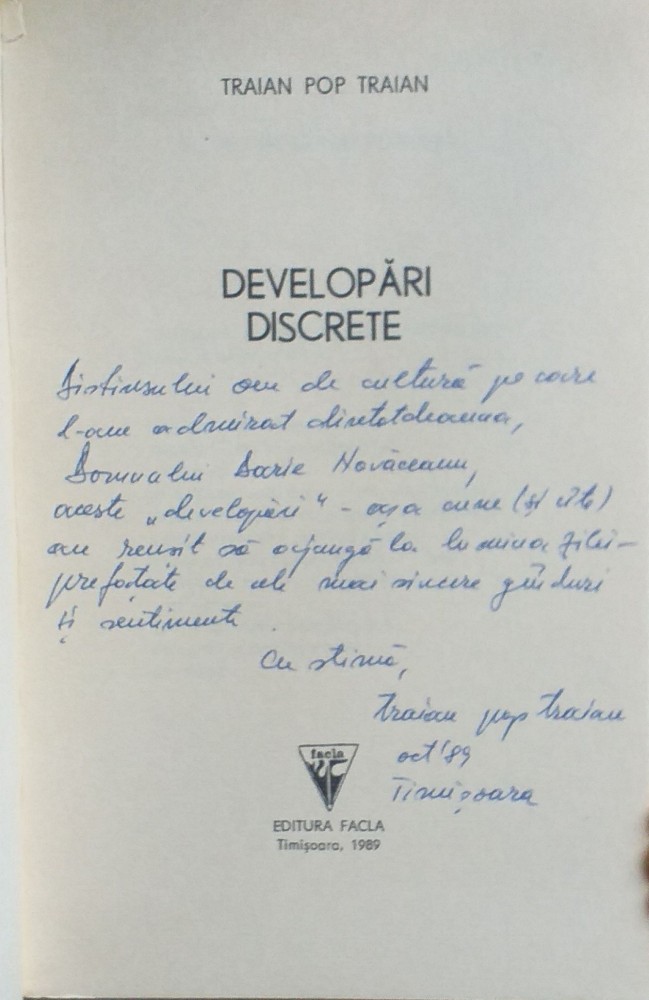 TRAIAN POP TRAIAN
DEVELOPĂRI
DISCRETE
Distinsului om de cultură pe care
l-am admirat dintotdeauna,
Domnului Darie Novăceanu,
aceste „developări" - așa cum (și cîte)
au reușit să ajungă la lumina zilei -
prefațate de cele mai sincere gînduri
și sentimente.
Cu stimă,
traian pop traian
oct '89
Timișoara
facla
EDITURA FACLA
Timișoara, 1989